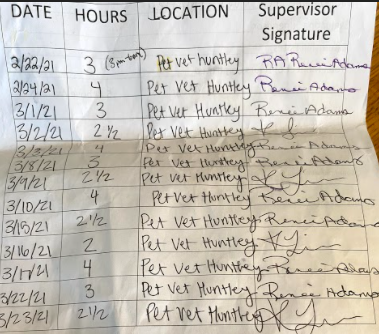 DATE HOURS LOCATION Supervisor
Signature
2/22/21 3 Pet vet huntley RA Renee Adams
2/24/21 4 Pet Vet Huntley Renee Adams
3/1/21 3 Pet Vet Huntley Renee Adams
3/2/21 2 1/2 Pet Vet Huntley
3/3/21 4 Pet Vet Huntley Renee Adams
3/8/21 3 Pet Vet Huntley Renee Adams
3/9/21 2 1/2 Pet Vet Huntley
3/10/21 4 Pet Vet Huntley Renee Adams
3/15/21 2 1/2 Pet Vet Huntley Renee Adams
3/16/21 2 Pet Vet Huntley
3/17/21 4 Pet Vet Huntley Renee Adams
3/22/21 3 Pet Vet Huntley Renee Adams
3/23/21 2 1/2 Pet Vet Huntley